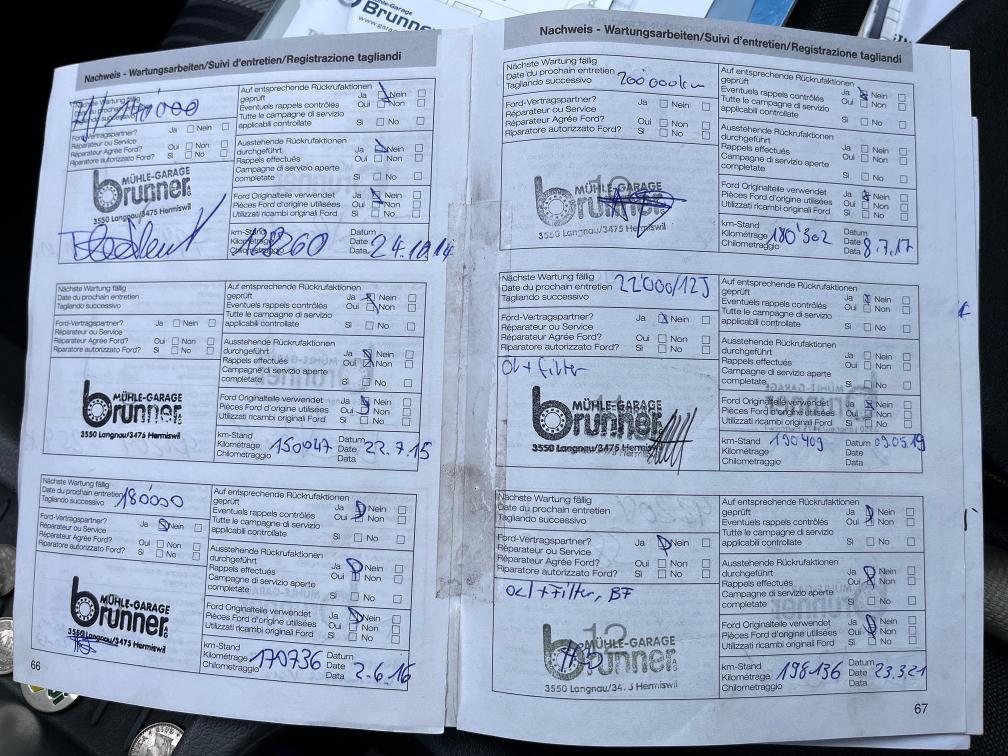 Mühle-Garage
Brunner
Nachweis - Wartungsarbeiten/Suivi d'entretien/Registrazione tagliandi
Nächste Wartung fällig
Ford-Vertragspartner? Ja Nein
Réparateur ou Service Oui Non
Réparateur Agrée Ford?
Riparatore autorizzato Ford? Si No
MÜHLE-GARAGE
brunner
3550 Langnau/3475 Hermiswil
Auf entsprechende Rückrufaktionen
geprüft Ja Nein
Eventuels rappels contrôlés Oui Non
Tutte le campagne di servizio
applicabili controllate Si No
Ausstehende Rückrufaktionen
durchgeführt Ja Nein
Rappels effectués Oui Non
Campagne di servizio aperte
completate Si No
Ford Originalteile verwendet Ja Nein
Pièces Ford d'origine utilisées Oui Non
Utilizzati ricambi originali Ford Si No
km-Stand
Kilométrage
Chilometraggio
Datum
Date 24.10.14
Data
Nächste Wartung fällig
Date du prochain entretien
Tagliando successivo
Ford-Vertragspartner? Ja Nein
Réparateur ou Service Oui Non
Réparateur Agrée Ford?
Riparatore autorizzato Ford? Si No
MÜHLE-GARAGE
brunner
3550 Langnau/3475 Hermiswil
Auf entsprechende Rückrufaktionen
geprüft Ja Nein
Eventuels rappels contrôlés Oui Non
Tutte le campagne di servizio
applicabili controllate Si No
Ausstehende Rückrufaktionen
durchgeführt Ja Nein
Rappels effectués Oui Non
Campagne di servizio aperte
completate Si No
Ford Originalteile verwendet Ja Nein
Pièces Ford d'origine utilisées Oui Non
Utilizzati ricambi originali Ford Si No
km-Stand
Kilométrage 150047
Chilometraggio
Datum
Date 22.7.15
Data
Nächste Wartung fällig
Date du prochain entretien 180'000
Tagliando successivo
Ford-Vertragspartner? Ja Nein
Réparateur ou Service Oui Non
Réparateur Agrée Ford?
Riparatore autorizzato Ford? Si No
MÜHLE-GARAGE
brunner
3550 Langnau/3475 Hermiswil
Auf entsprechende Rückrufaktionen
geprüft Ja Nein
Eventuels rappels contrôlés Oui Non
Tutte le campagne di servizio
applicabili controllate Si No
Ausstehende Rückrufaktionen
durchgeführt Ja Nein
Rappels effectués Oui Non
Campagne di servizio aperte
completate Si No
Ford Originalteile verwendet Ja Nein
Pièces Ford d'origine utilisées Oui Non
Utilizzati ricambi originali Ford Si No
km-Stand
Kilométrage 170736
Chilometraggio
Datum
Date 2.6.16
Data
66
Nachweis - Wartungsarbeiten/Suivi d'entretien/Registrazione tagliandi
Nächste Wartung fällig
Date du prochain entretien 200'000km
Tagliando successivo
Ford-Vertragspartner? Ja Nein
Réparateur ou Service Oui Non
Réparateur Agrée Ford?
Riparatore autorizzato Ford? Si No
MÜHLE-GARAGE
brunner
3550 Langnau/3475 Hermiswil
Auf entsprechende Rückrufaktionen
geprüft Ja Nein
Eventuels rappels contrôlés Oui Non
Tutte le campagne di servizio
applicabili controllate Si No
Ausstehende Rückrufaktionen
durchgeführt Ja Nein
Rappels effectués Oui Non
Campagne di servizio aperte
completate Si No
Ford Originalteile verwendet Ja Nein
Pièces Ford d'origine utilisées Oui Non
Utilizzati ricambi originali Ford Si No
km-Stand
Kilométrage 180'302
Chilometraggio
Datum
Date 8.7.17
Data
Nächste Wartung fällig
Date du prochain entretien 22'000/12J
Tagliando successivo
Ford-Vertragspartner? Ja Nein
Réparateur ou Service Oui Non
Réparateur Agrée Ford?
Riparatore autorizzato Ford? Si No
Öl + filter
MÜHLE-GARAGE
brunner
3550 Langnau/3475 Hermiswil
Auf entsprechende Rückrufaktionen
geprüft Ja Nein
Eventuels rappels contrôlés Oui Non
Tutte le campagne di servizio
applicabili controllate Si No
Ausstehende Rückrufaktionen
durchgeführt Ja Nein
Rappels effectués Oui Non
Campagne di servizio aperte
completate Si No
Ford Originalteile verwendet Ja Nein
Pièces Ford d'origine utilisées Oui Non
Utilizzati ricambi originali Ford Si No
km-Stand 190409
Kilométrage
Chilometraggio
Datum 03.05.19
Date
Data
Nächste Wartung fällig
Date du prochain entretien
Tagliando successivo
Ford-Vertragspartner? Ja Nein
Réparateur ou Service Oui Non
Réparateur Agrée Ford?
Riparatore autorizzato Ford? Si No
Oel + Filter, BF
MÜHLE-GARAGE
brunner
Hermiswil
Auf entsprechende Rückrufaktionen
geprüft Ja Nein
Eventuels rappels contrôlés Oui Non
Tutte le campagne di servizio
applicabili controllate Si No
Ausstehende Rückrufaktionen
durchgeführt Ja Nein
Rappels effectués Oui Non
Campagne di servizio aperte
completate Si No
Ford Originalteile verwendet Ja Nein
Pièces Ford d'origine utilisées Oui Non
Utilizzati ricambi originali Ford Si No
km-Stand
Kilométrage 198136
Chilometraggio
Datum
Date 23.3.21
Data
67